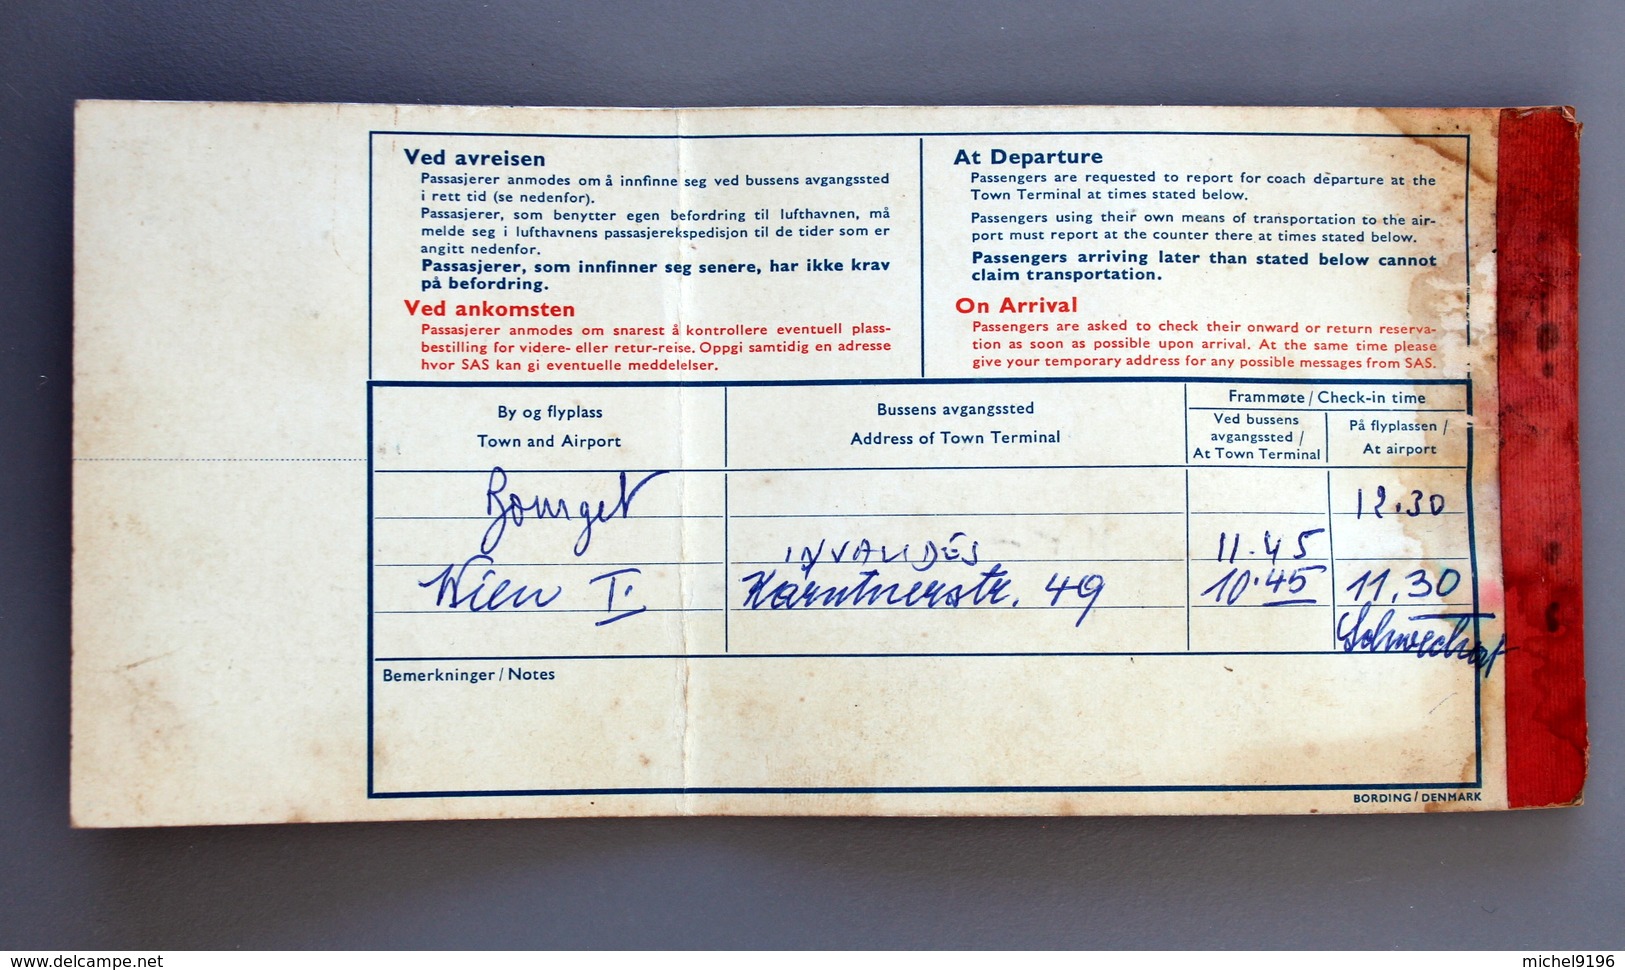 Ved avreisen
Passasjerer anmodes om å innfinne seg ved bussens avgangssted
i rett tid (se nedenfor).
Passasjerer, som benytter egen befordring til lufthavnen, må
melde seg i lufthavnens passasjerekspedisjon til de tider som er
angitt nedenfor.
Passasjerer, som innfinner seg senere, har ikke krav
på befordring.
Ved ankomsten
Passasjerer anmodes om snarest å kontrollere eventuell plass-
bestilling for videre- eller retur-reise. Oppgi samtidig en adresse
hvor SAS kan gi eventuelle meddelelser.
At Departure
Passengers are requested to report for coach departure at the
Town Terminal at times stated below.
Passengers using their own means of transportation to the air-
port must report at the counter there at times stated below.
Passengers arriving later than stated below cannot
claim transportation.
On Arrival
Passengers are asked to check their onward or return reserva-
tion as soon as possible upon arrival. At the same time please
give your temporary address for any possible messages from SAS.
By og flyplass
Town and Airport
Bussens avgangssted
Address of Town Terminal
Frammøte / Check-in time
Ved bussens
avgangssted /
At Town Terminal
På flyplassen /
At airport
Bourget 12.30
INVALIDES 11.45
Wien I. Kärntnerstr. 49 10.45 11.30
Schwechat
Bemerkninger / Notes
BORDING / DENMARK
www.delcampe.net
michel9196